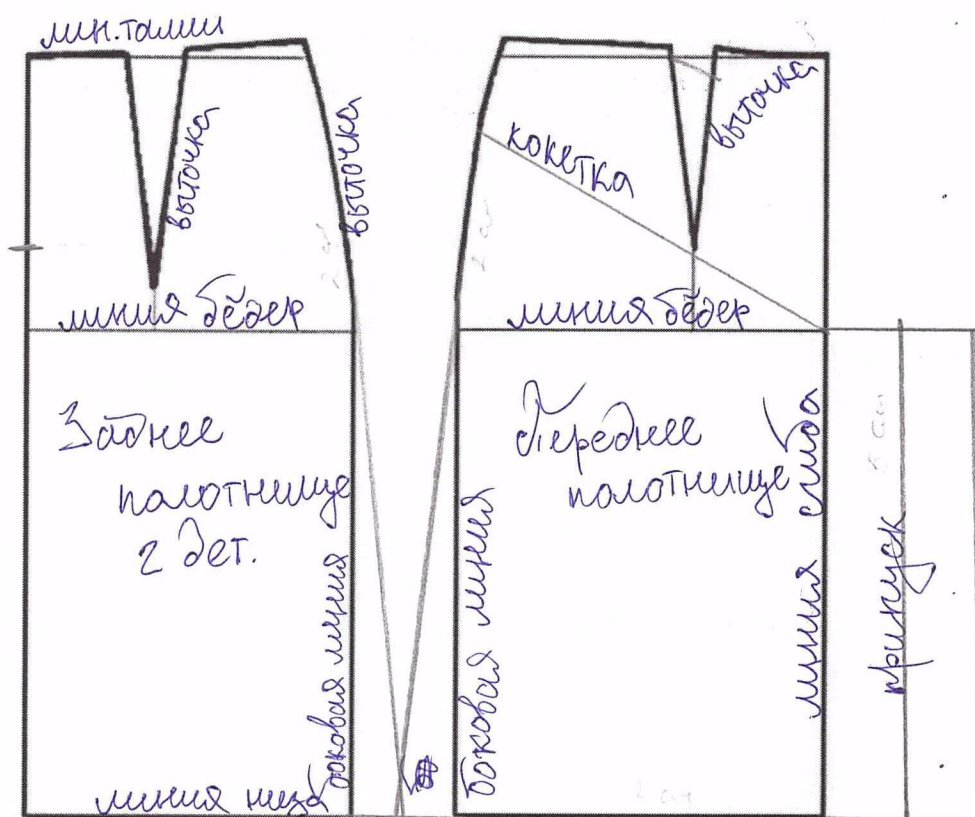 лин. талии
выточка
выточка
линия бёдер
Заднее
полотнище
2 дет.
боковая линия
линия низа
кокетка
выточка
линия бёдер
Переднее
полотнище
боковая линия
линия сгиба
припуск
2 см
2 см